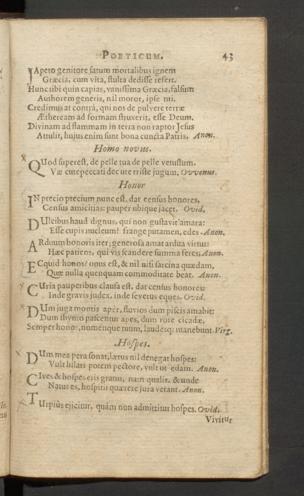 POETICUM. 43
IApeto genitore satum mortalibus ignem
Græcia, cum vita, stulta dedisse refert.
Hunc tibi quin capias, vanissima Græcia, falsum
Authorem generis, nil moror, ipse mi.
Credimus at contrà, qui nos de pulvere terræ
Æthream ad formam struxerit, esse Deum.
Divinam ad flammam in terra non raptor Jesus
Attulit, hujus enim sunt bona cuncta Patris. Anon.
Homo novus.
QUod superest, de pelle tua de pelle vetustum.
Væ cute peccati decute triste jugum. Ovvenus.
Honor
IN precio precium nunc est, dat census honores,
Census amicitias: pauper ubique jacet. Ovid.
DUlcibus haud dignus, qui non gustavit amara:
Esse cupis nucleum? frange putamen, edes. Anon.
ARduum honoris iter; generosa amat ardua virtus
Hæc patiens, qui vis scandere summa feres. Anon.
ECquid honos? onus est, & nil nisi sarcina quædam,
Quæ nulla quenquam commoditate beat. Anon.
CUria pauperibus clausa est, dat census honores:
Inde gravis judex, inde severus eques. Ovid.
DUm juga montis aper, fluvios dum piscis amabit:
Dum thymo pascentur apes, dum rore cicadæ,
Semper honor, nomenque tuum, laudesq; manebunt. Virg.
Hospes.
DUm mea pera sonat, lætus nil denegat hospes:
Vult hilari potem pectore, vult ut edam. Anon.
CIves & hospes eris gratus, nam qualis, & unde
Natus es, hospitii quærere jura vetant. Anon.
TUrpius ejicitur, quàm non admittitur hospes. Ovid.
Vivitur